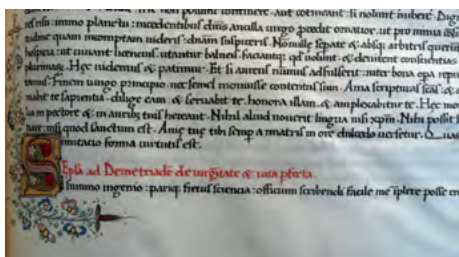 non possunt continere, aut coinceant, si nolunt nubere. Dig
ex risu: immo planctu: incedentibus dñis ancilla uirgo pcedit ornatior, ut pro nimia
eudine quam incomptam uideris: dñam suspiceris. Nonnulle sepate & absq; arbitris querunt
hospicia: ut uiuant licencius: utantur balneis: faciantq; qđ uolunt: & deuitent conscientias
plurimaꝝ. Hec uidemus & patimur. Et si aureus nūmus adfulserit: inter bona opa repu
tamus. Finem iungo principio nec semel monuisse contentus sum. Ama scripturas scās: &
mabit te sapientia. dilige eam: & seruabit te. honora illam, & amplexabitur te. Hec mo
la in pectore & in aurib; tuis hereant. Nihil aliud nouerit lingua nisi xp̄m. Nihil possit
nare: nisi quod sanctum est. Auie tue tibi semp a matris in ore dulcedo uersetur.
imitacio forma uirtutis est.
Epła ad Demetriadē de uirgītate & uita pfecta.
Si summo ingenio: pariq; fretus sciencia: officium scribendi facile me īplere posse